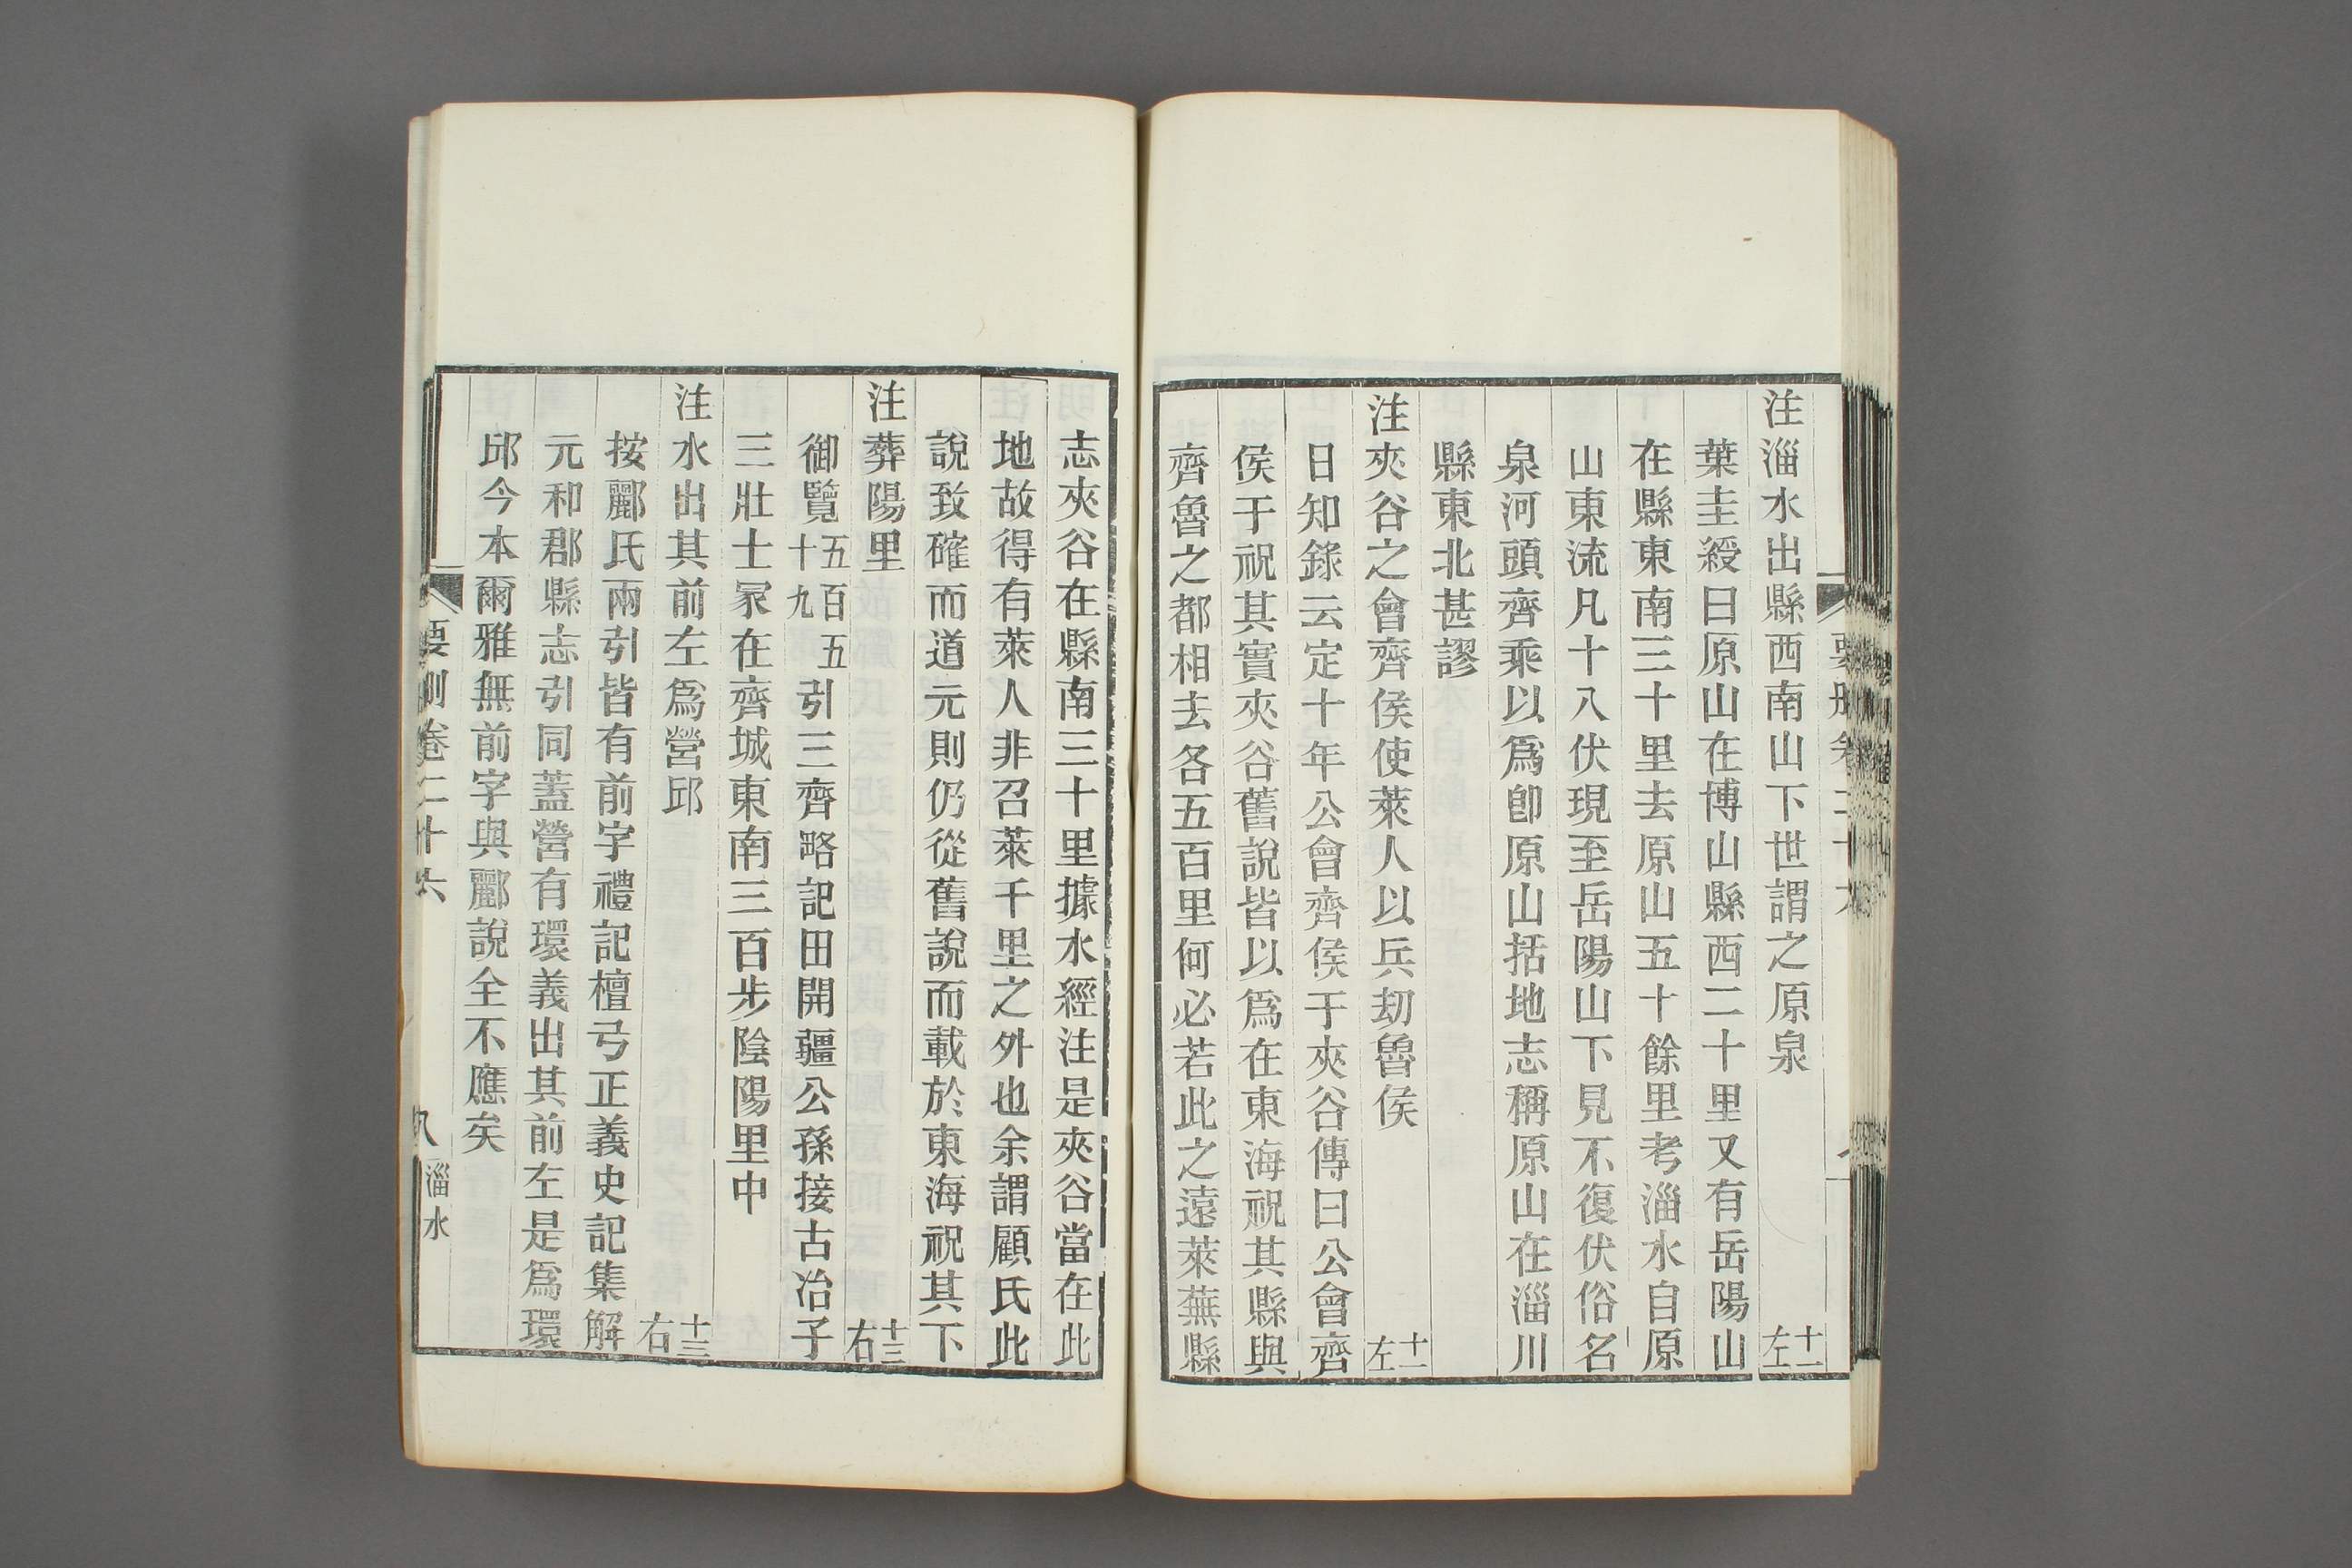 注淄水出縣西南山下世謂之原泉 十一左
葉圭綬曰原山在博山縣西二十里又有岳陽山
在縣東南三十里去原山五十餘里考淄水自原
山東流凡十八伏現至岳陽山下見不復伏俗名
泉河頭齊乘以爲卽原山括地志稱原山在淄川
縣東北甚謬
注夾谷之會齊侯使萊人以兵刧魯侯 十一左
日知錄云定十年公會齊侯于夾谷傳曰公會齊
侯于祝其實夾谷舊說皆以爲在東海祝其縣與
齊魯之都相去各五百里何必若此之遠萊蕪縣
志夾谷在縣南三十里據水經注是夾谷當在此
地故得有萊人非召萊千里之外也余謂顧氏此
說致確而道元則仍從舊說而載於東海祝其下
注葬陽里 十三右
御覽五百五十九引三齊略記田開疆公孫接古冶子
三壯士冢在齊城東南三百步陰陽里中
注水出其前左爲營邱 十三右
按酈氏兩引皆有前字禮記檀弓正義史記集解
元和郡縣志引同蓋營有環義出其前左是爲環
邱今本爾雅無前字與酈說全不應矣
要刪卷二十六 九 淄水